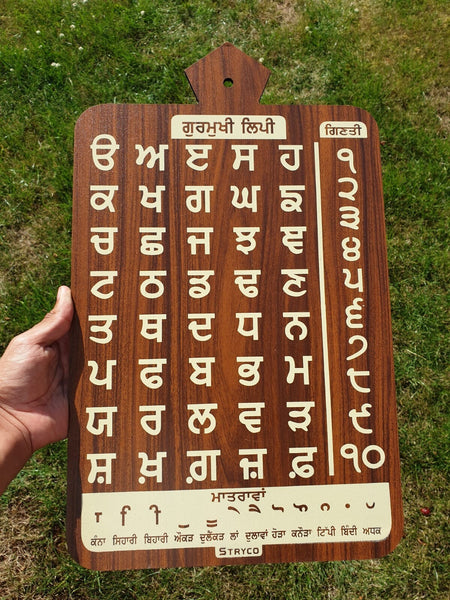 ਗੁਰਮੁਖੀ ਲਿਪੀ ਗਿਣਤੀ
ੳ ਅ ੲ ਸ ਹ ੧
ਕ ਖ ਗ ਘ ਙ ੨
ਚ ਛ ਜ ਝ ਞ ੩
ਟ ਠ ਡ ਢ ਣ ੪
ਤ ਥ ਦ ਧ ਨ ੫
ਪ ਫ ਬ ਭ ਮ ੬
ਯ ਰ ਲ ਵ ੜ ੭
ਸ਼ ਖ਼ ਗ਼ ਜ਼ ਫ਼ ੮
੯
੧੦
ਮਾਤਰਾਵਾਂ
ਾ ਿ ੀ ੁ ੂ ੇ ੈ ੋ ੌ ੰ ਂ ੱ
ਕੰਨਾ ਸਿਹਾਰੀ ਬਿਹਾਰੀ ਔਂਕੜ ਦੁਲੈਂਕੜ ਲਾਂ ਦੁਲਾਵਾਂ ਹੋੜਾ ਕਨੌੜਾ ਟਿੱਪੀ ਬਿੰਦੀ ਅਧਕ
STRYCO